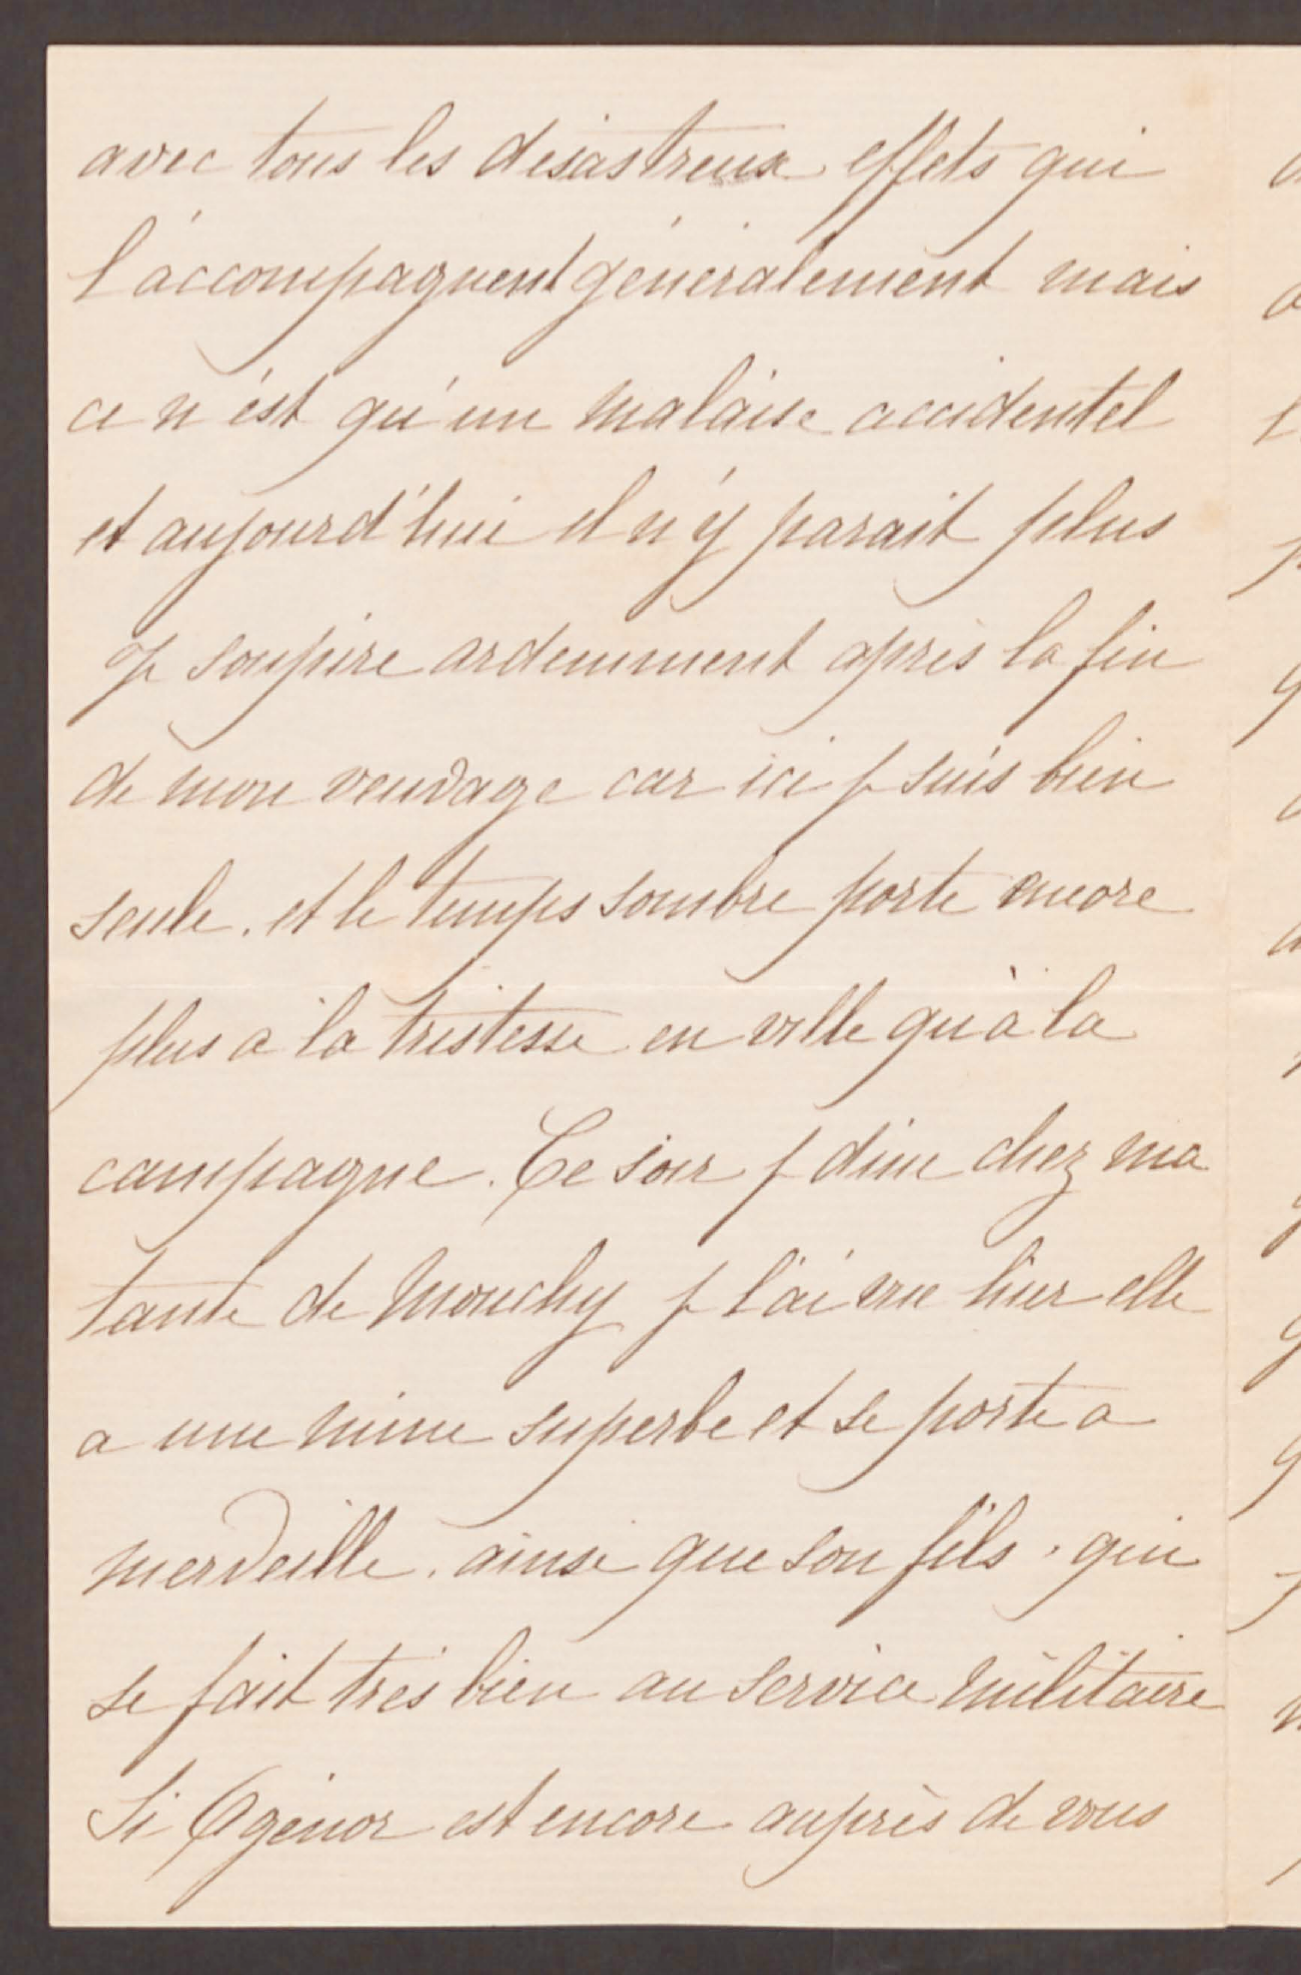 avec tous les desastreux effets qui
l'accompagnent généralement mais
ce n'est qu'un malaise accidentel
et aujourd'hui il n'y parait plus
je soupire ardemment après la fin
de mon vendage car ici je suis bien
seule. et le temps sombre porte encore
plus a la tristesse en ville qu'à la
campagne. Ce soir je dine chez ma
tante de Mouchy je l'ai vue hier elle
a une mine superbe et se porte a
merveille. ainsi que son fils, qui
se fait très bien au service militaire
Si Agénor est encore auprès de vous